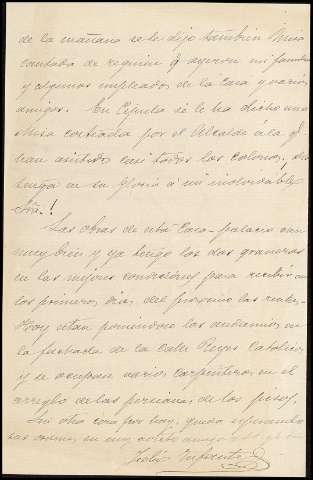 de la mañana se le dijo también Misa
cantada de requiem q. oyeron mi familia
y algunos empleados de la Casa y varios
amigos. En Espeluy se le ha dicho una
Misa costeada por el Alcalde á la q.
han asistido casi todos los colonos,
tenga en su Gloria á mi inolvidable
!
Las obras de esta Casa-palacio van
muy bien y ya tengo las dos graneras
en las mejores condiciones para recibir en
los primeros días del próximo las rentas.
Hoy están poniendo los andamios en
la fachada de la calle Reyes Católicos
y se ocupan varios carpinteros en el
arreglo de las persianas de los pisos.
Sin otra cosa por hoy, queda esperando
sus órdenes su muy adicto amigo